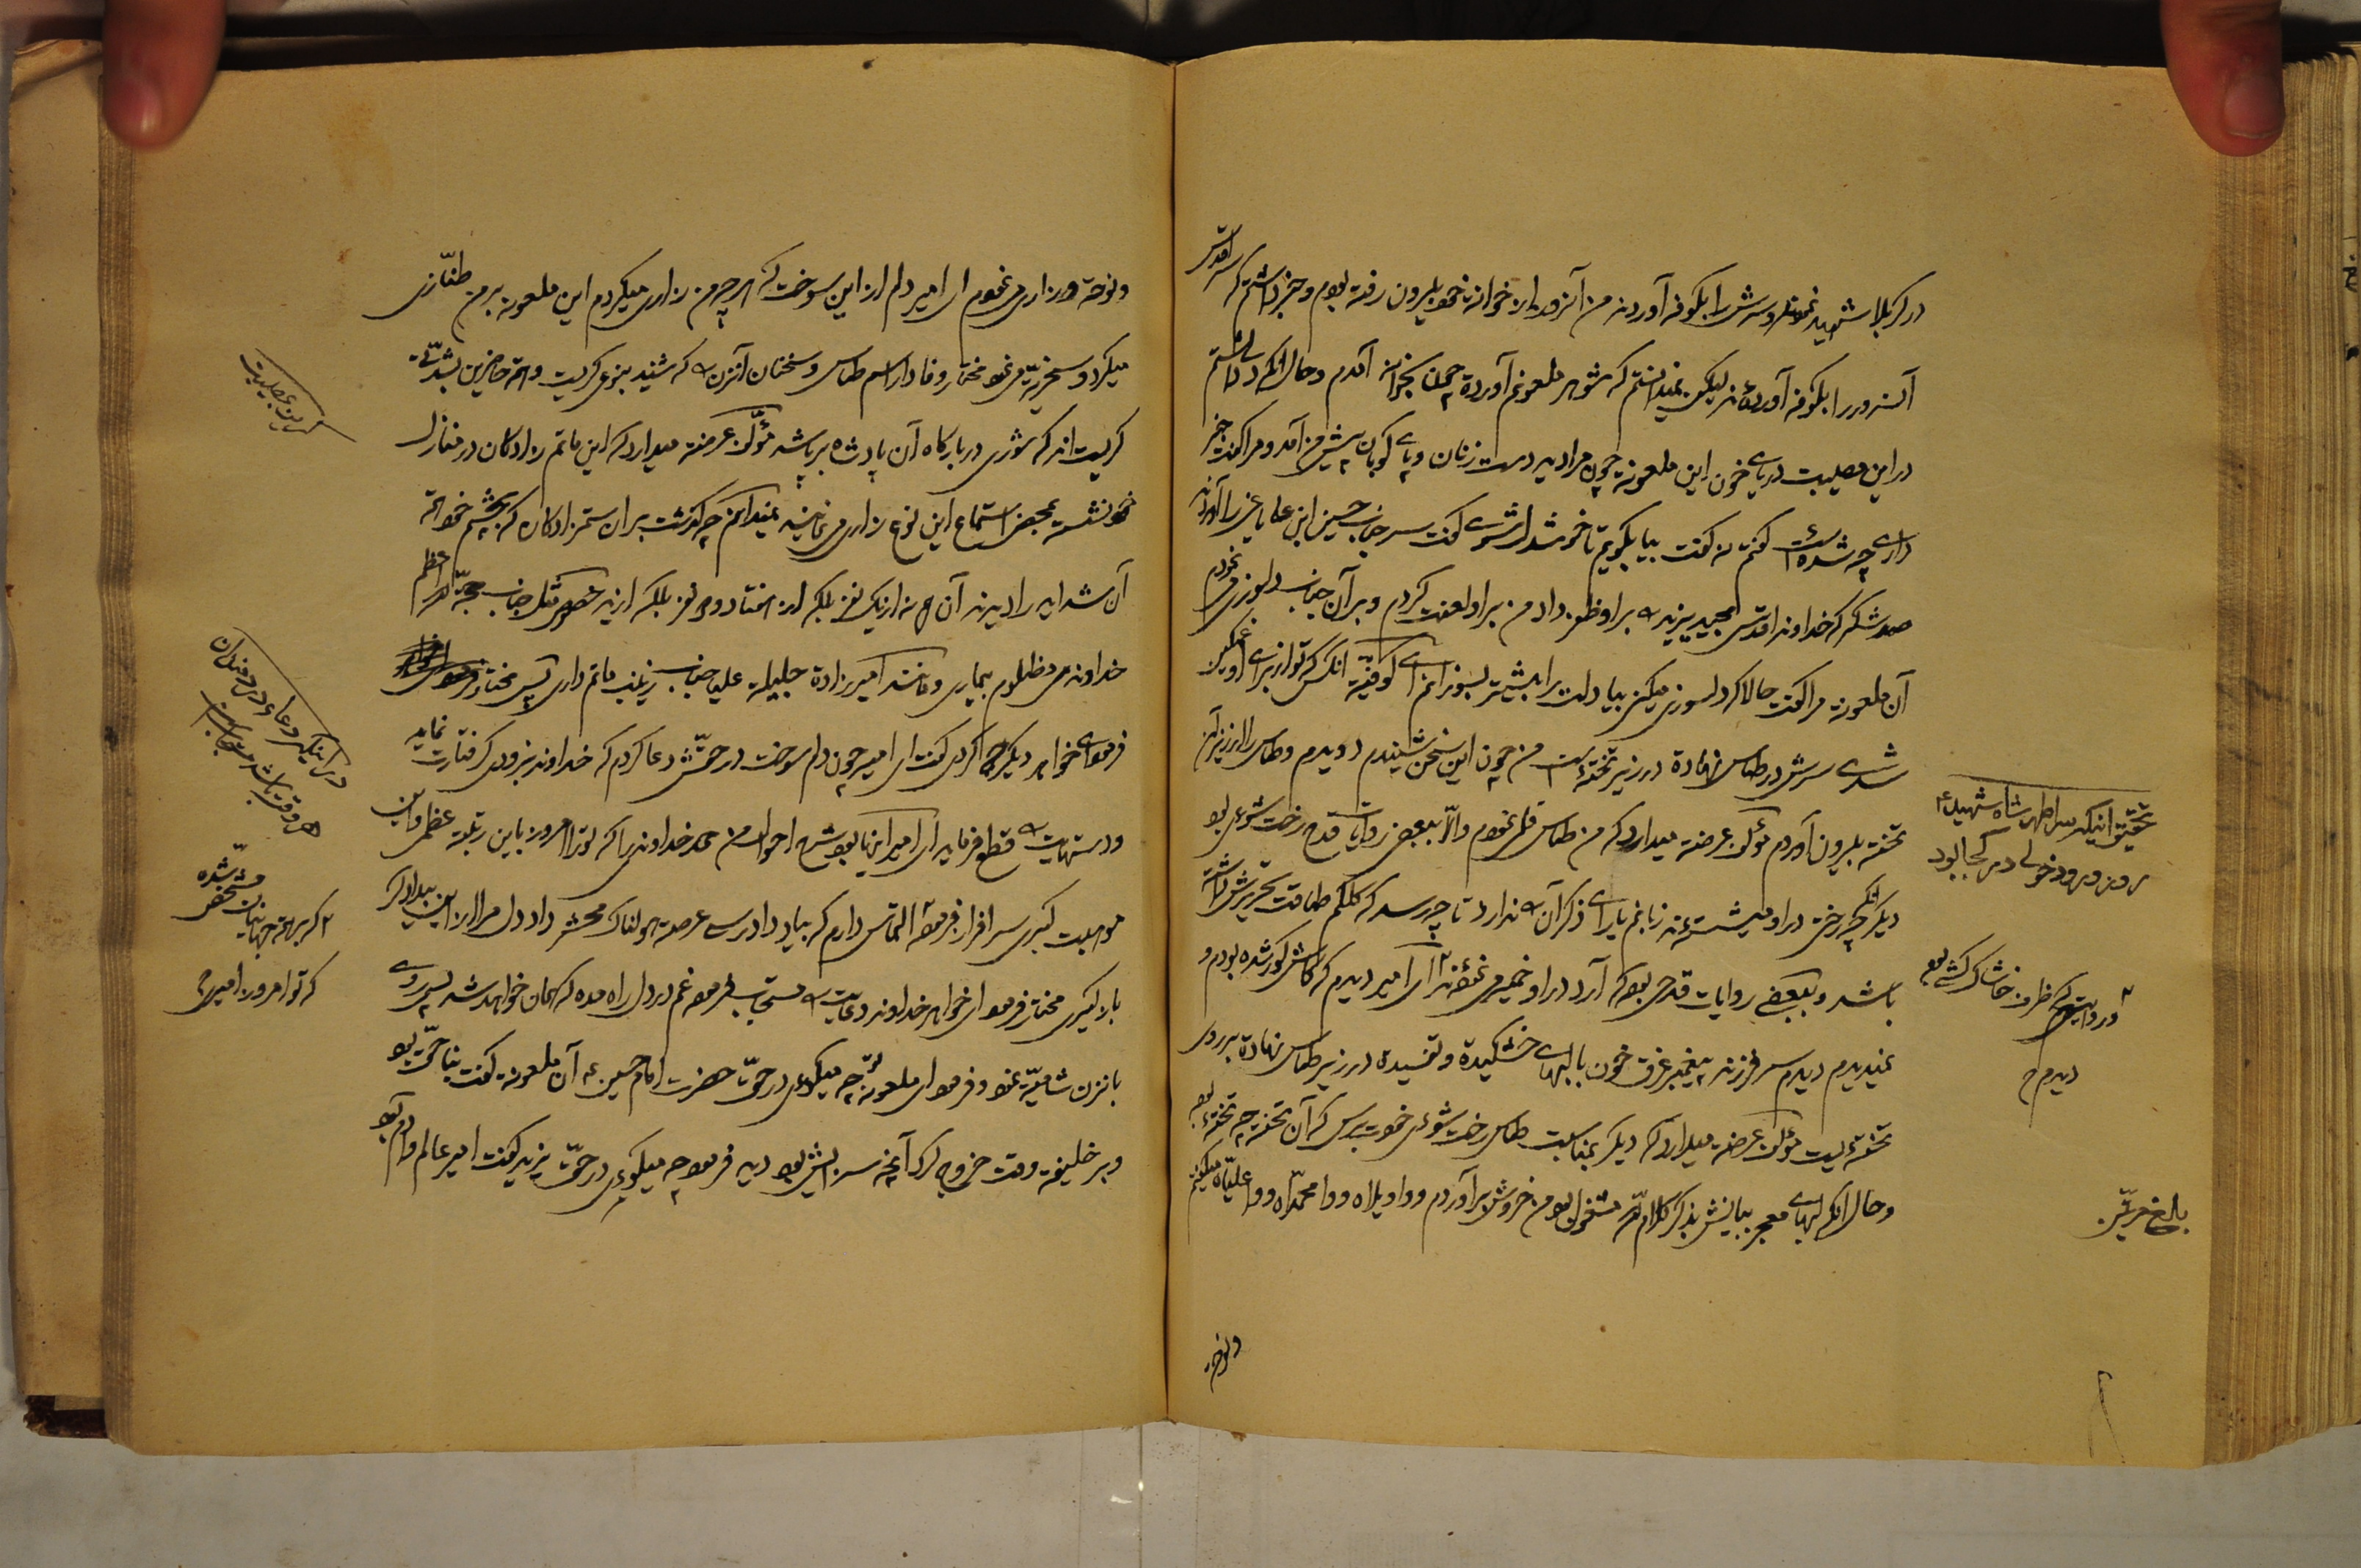 در کربلا شهید نمودند و سرش را بکوفه آوردند من آنروز از خانه خود بیرون رفته بودم و خبر داشتم که سر اقدس
آنسرور را بکوفه آورده‌اند لیکن نمیدانستم که شوهر ملعونم آورده چون بخانه آمدم و حال آنکه دل داشتم
در این مصیبت دریای خون این ملعونه چون مرا دید دست زنان و پای کوبان پیش من آمد و مرا گفت خبر
داری چه شده است گفتم نه گفت بیا بگویم تا خوشدل شوی گفت سر جناب حسین ابن علی را آوردند
صد شکر که خداوند اقدس مجید یزید را بر او ظفر داد من بر او لعنت کردم و بر آن جناب دلسوزی نمودم
آن ملعونه مرا گفت حالا که دلسوزی میکنی بیا دلت را بیشتر بسوزانم ای کوفیه آنکس که تو از برای او غمگین
شدی سرش در طاس نهاده در زیر تخته است من چون این سخن شنیدم دویدم و طاس را از زیر آن
تخته بیرون آوردم مؤلف عرضه میدارد که من طاس قلمی نمودم والا ببعضی روایات قدح رخت شوئی بود
دیگر آنکه چه رختی در او میشسته‌اند زبانم یارای ذکر آن را ندارد تا چه رسد که کلکم طاقت تحریرش داشته
باشد و ببعضی روایات قدحی بود که آرد در او خمیر می نموده‌اند ای امیر دیدم که کاش کور شده بودم و
نمیدیدم دیدم سر فرزند پیغمبر غرق خون با لبهای خشکیده و تفسیده در زیر طاس نهاده بر روی
تخته ایست مؤلف عرضه میدارد که دیگر بمناسبت طاس رخت شوئی خود بپرس که آن تخته چه تخته بوده
و حال آنکه لبهای معجز بیانش بذکر کلام الله مشغول بود من خروش برآوردم و واویلاه و وامحمداه و واعلیاه میگفتم
ونوحه
تحقیق اینکه سر اطهر شاه شهید ع
روز ورود خولی در کجا بود
دیدم ح
ونوحه و زاری می نمودم ای امیر دلم از این سوخت که هر چه من زاری میکردم این ملعونه بر من طنّازی
میکرد و سخریّه می نمود مختار وفادار اسم طاس و سخنان آنزن را که شنید بنوعی گریست و همه حاضرین بشدتی
گریستند که شوری در بارگاه آن پادشاه برپا شد مؤلف عرضه میدارد که این ماتم زادگان در منازل
خود نشسته بمحض استماع این نوع زاری می نمایند نمیدانم چه گذشت بر آن ستمزادگان که بچشم خود همه
آن شداید را دیدند آن هم نه از یک نفر بلکه از هفتاد و دو نفر بلکه از ید خصوص مثل جناب حجة الله اعظم
خداوند می مظلوم بیماری و مانند امیرزاده جلیله علیا جناب زینب ماتم داری پس مختار
فرمود ای خواهر دیگر چه کردی گفت ای امیر چون دلم سوخت در حقش دعا کردم که خداوند بزودی گرفتارت نماید
و دستهایت را قطع فرماید ای امیر این بود شرح احوال من حمد خداوندی را که تو را امروز باین رتبه عظمی و این
موهبت کبری سرافراز فرموده التماس دارم که بیاد دادرسی عرصه هولناک محشر داد دل مرا از این بیدادگر
بازگیری مختار فرمود ای خواهر خداوند دعایت را مستجاب فرموده غم در دل راه مده که همان خواهد شد پس روی
بآنزن شامیّه نمود و فرمود ای ملعونه تو چه میگوئی در حقّ حضرت امام حسین ع آن ملعونه گفت بناحق بود
و بر خلیفه وقت خروج کرد آنچه سزایش بود دید فرمود چه میگوئی در حقّ یزید گفت امیر عالم و آدم بود
گریز بمصیبت
در اینکه دعاء
که تو امروز امیری